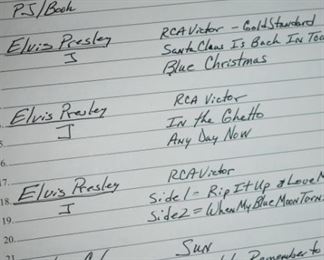 PJ/Book
Elvis Presley RCA Victor - Gold Standard
J Santa Claus Is Back In
Blue Christmas
Elvis Presley RCA Victor
J In the Ghetto
15. Any Day Now
16.
17. RCA Victor
18. Elvis Presley Side 1 = Rip It Up & Love M
19. J Side 2 = When My Blue Moon Turns
20.
21. Sun
Remember to